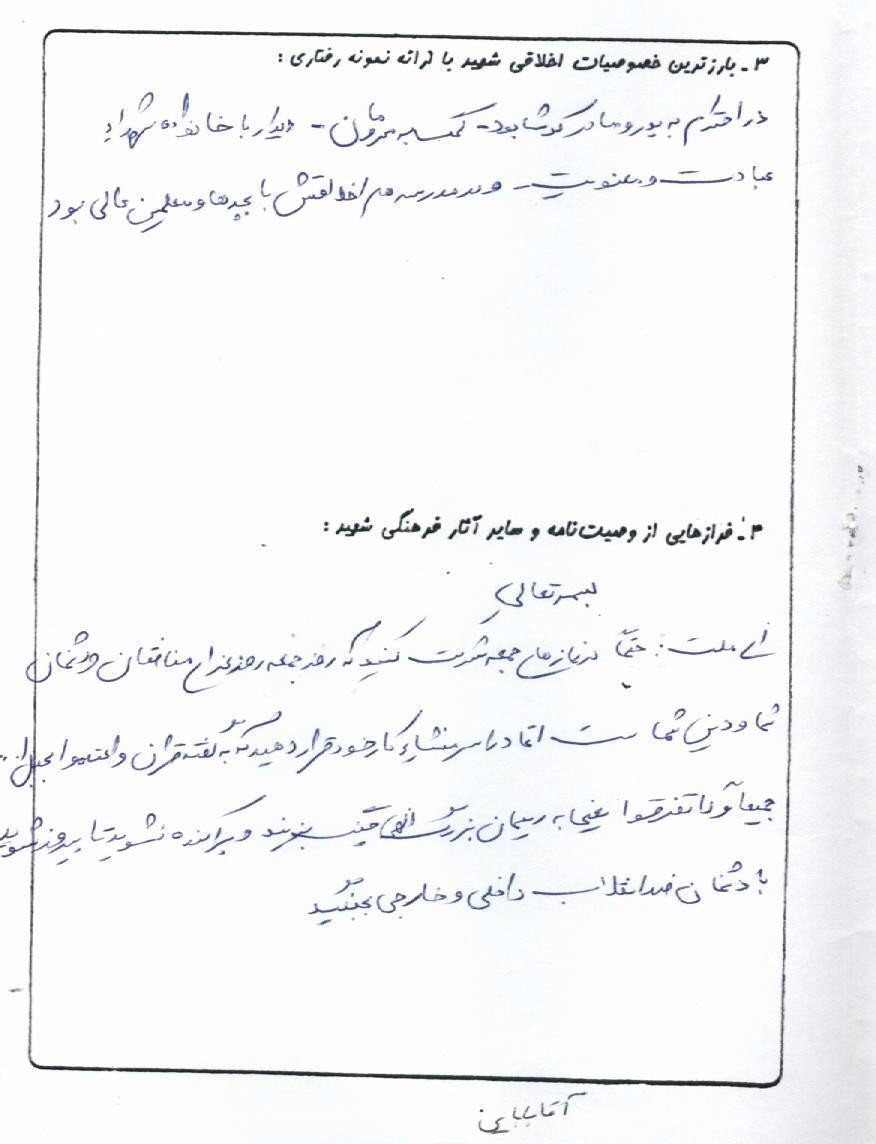 ۳ـ بارزترین خصوصیات اخلاقی شهید با ارائه نمونه رفتاری :
در احترام به پدر و مادر کوشا بود - کمک به محرومان - دیدار با خانواده شهداء
عبادت و معنویت - و در مدرسه هم اخلاقش با بچه‌ها و معلمین عالی بود
۴ـ فرازهایی از وصیت‌نامه و سایر آثار فرهنگی شهید :
بسمه تعالی
ای ملت : حتماً در نمازهای جمعه شرکت کنید که روز جمعه روز عزای منافقان و دشمنان
شما و دین شماست اتحاد را سرمنشاء کار خود قرار دهید که به گفته قرآن واعتصموا بحبل ا...
جمیعاً و لا تفرقوا یعنی به ریسمان بزرگ الهی چنگ بزنید و پراکنده نشوید تا پیروز شوید
با دشمنان ضد انقلاب داخلی و خارجی بجنگید
آقابابایی